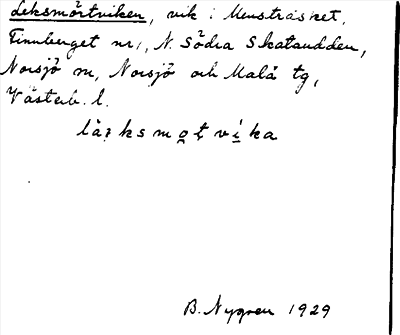 Leksmörtviken, vik i Mensträsket,
Finnberget nr 1, N. Södra Skatanudden,
Norsjö sn, Norsjö och Malå tg,
Västerb. l.
B. Nygren 1929